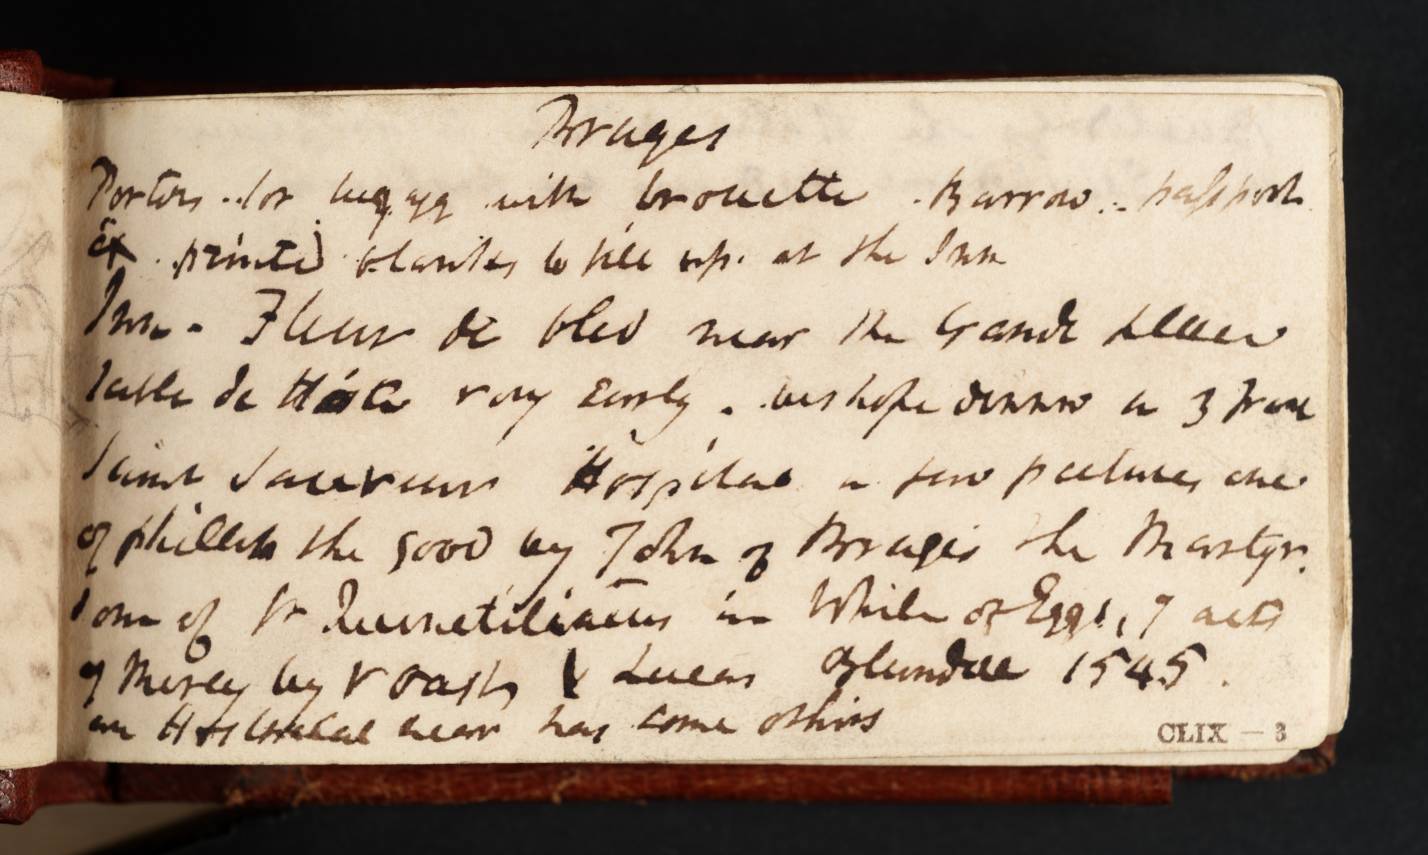 Bruges
Porters for luggage with brouette Barrow passport
printed blanks to fill up at the Inn
Inn - Fleur de Bled near the Grande
Table de Hote very Early dinner a 3 Franc
Saint Hospital a few pictures one
of Phillip the good by John of Bruges the Martyr
dom of St in White of Eggs, 7 acts
of Mercy by & Lucas Blundal 1545
an Hospital near has some others
CLIX - 3